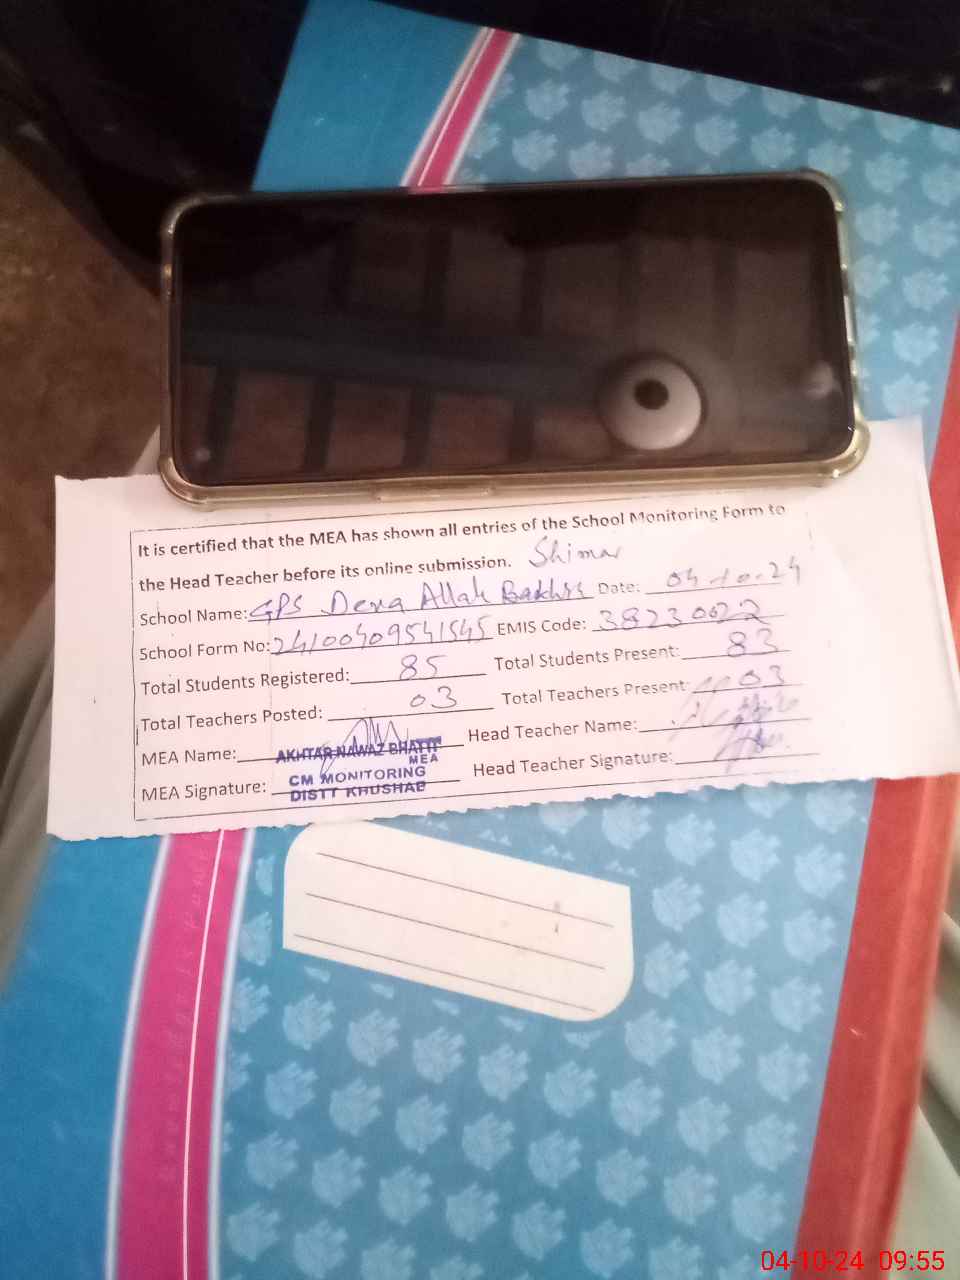 It is certified that the MEA has shown all entries of the School Monitoring Form to
the Head Teacher before its online submission. Shimar
School Name: GPS Dera Allah Bakhsh Date: 04-10-24
School Form No: 24100409541545 EMIS Code: 38230022
Total Students Registered: 85 Total Students Present: 83
Total Teachers Posted: 03 Total Teachers Present: 03
MEA Name: AKHTAR NAWAZ BHATTI Head Teacher Name:
MEA
MEA Signature: CM MONITORING Head Teacher Signature:
DISTT KHUSHAB
04-10-24 09:55